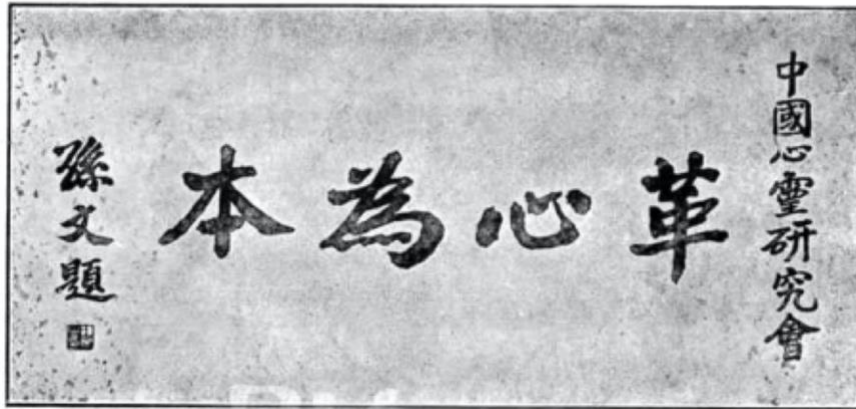 中國心靈研究會
革心為本
孫文題